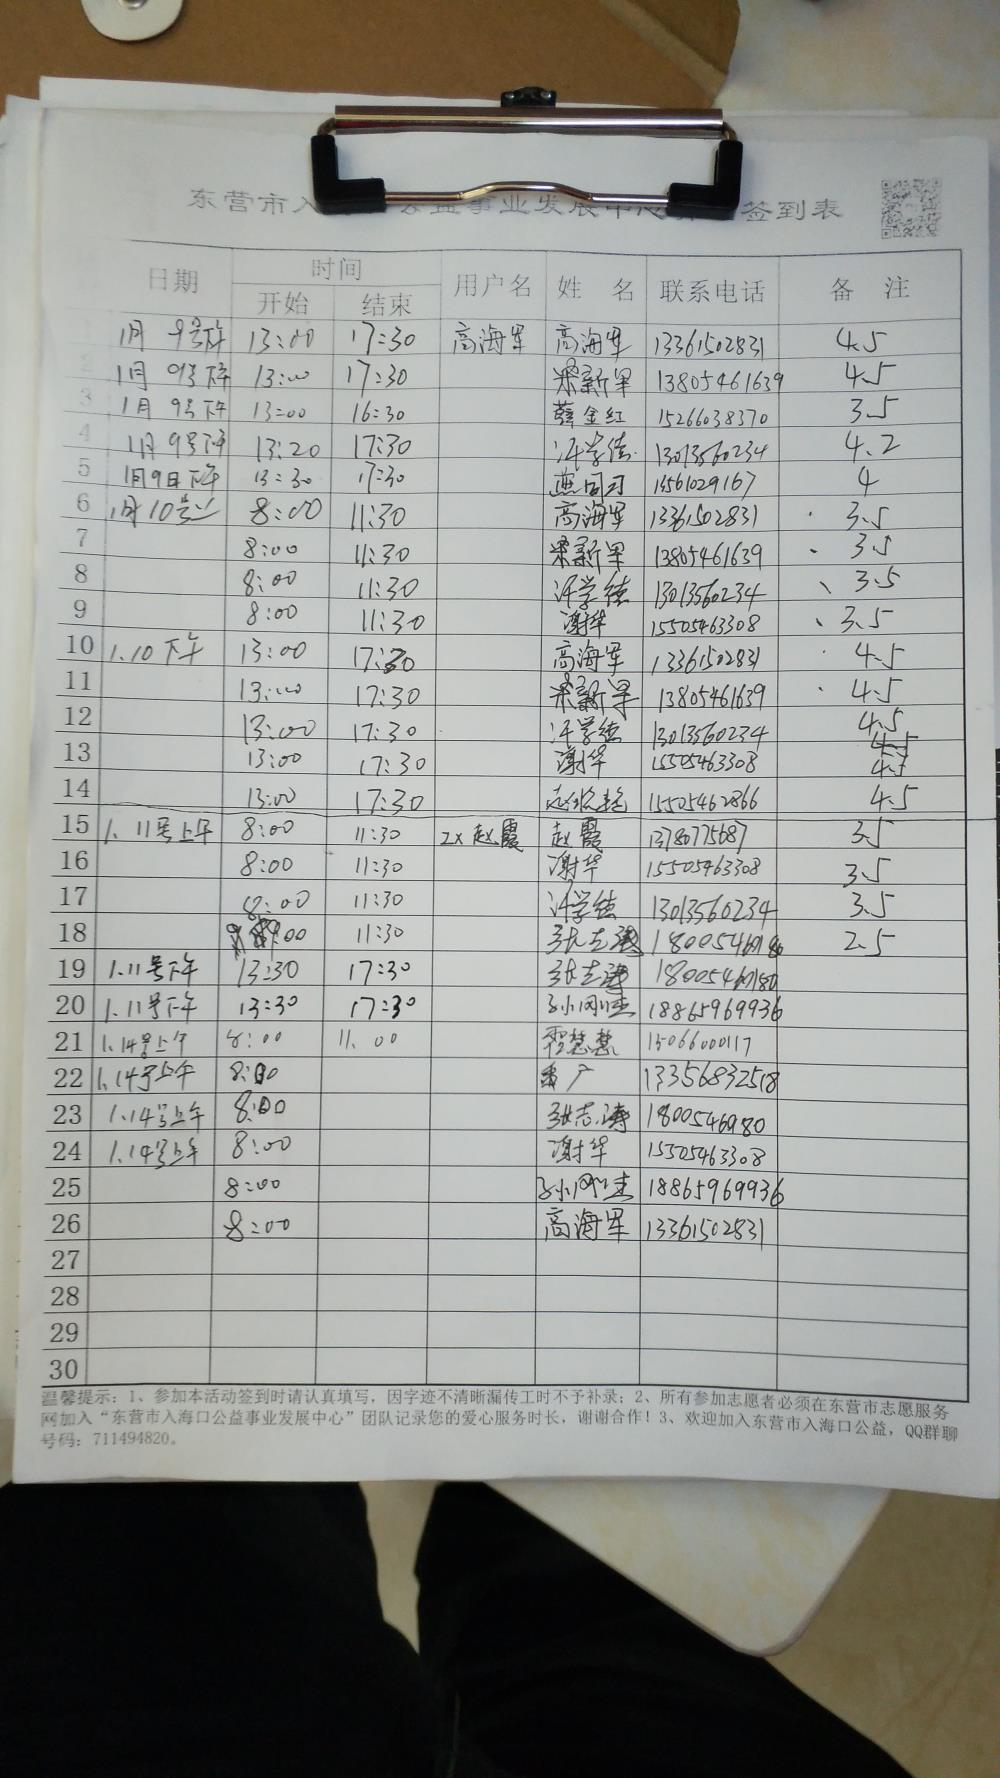 东营市入 公益事业发展中心 签到表
日期 时间 用户名 姓 名 联系电话 备 注
开始 结束
1 1月 9号下午 13:00 17:30 高海军 高海军 13361502831 4.5
2 1月 9号下午 13:00 17:30 新军 13805461639 4.5
3 1月 9号下午 13:00 16:30 薛金红 15266038370 3.5
4 1月9号下午 13:20 17:30 学德 13013560234 4.2
5 1月9日下午 13:30 17:30 13561029167 4
6 1月10号上 8:00 11:30 高海军 13361502831 3.5
7 8:00 11:30 新军 13805461639 3.5
8 8:00 11:30 学德 13013560234 3.5
9 8:00 11:30 谢华 15505463308 3.5
10 1.10下午 13:00 17:30 高海军 13361502831 4.5
11 13:00 17:30 新军 13805461639 4.5
12 13:00 17:30 学德 13013560234 4.5
13 13:00 17:30 谢华 15505463308 4.5
14 13:00 17:30 15505462866 4.5
15 1.11号上午 8:00 11:30 zx赵霞 赵霞 13780775687 3.5
16 8:00 11:30 谢华 15505463308 3.5
17 8:00 11:30 学德 13013560234 3.5
18 :00 11:30 张志涛 2.5
19 1.11号下午 13:30 17:30 张志涛
20 1.11号下午 13:30 17:30 孙刚杰 18865969936
21 1.14号上午 8:00 11.00 程慧慧 15066000117
22 1.14号上午 8:00 13356832518
23 1.14号上午 8:00 张志涛 1800546980
24 1.14号上午 8:00 谢华 15505463308
25 8:00 孙刚杰 18865969936
26 8:00 高海军 13361502831
27
28
29
30
温馨提示：1、参加本活动签到时请认真填写，因字迹不清晰漏传工时不予补录；2、所有参加志愿者必须在东营市志愿服务
网加入“东营市入海口公益事业发展中心”团队记录您的爱心服务时长，谢谢合作！3、欢迎加入东营市入海口公益，QQ群聊
号码：711494820。